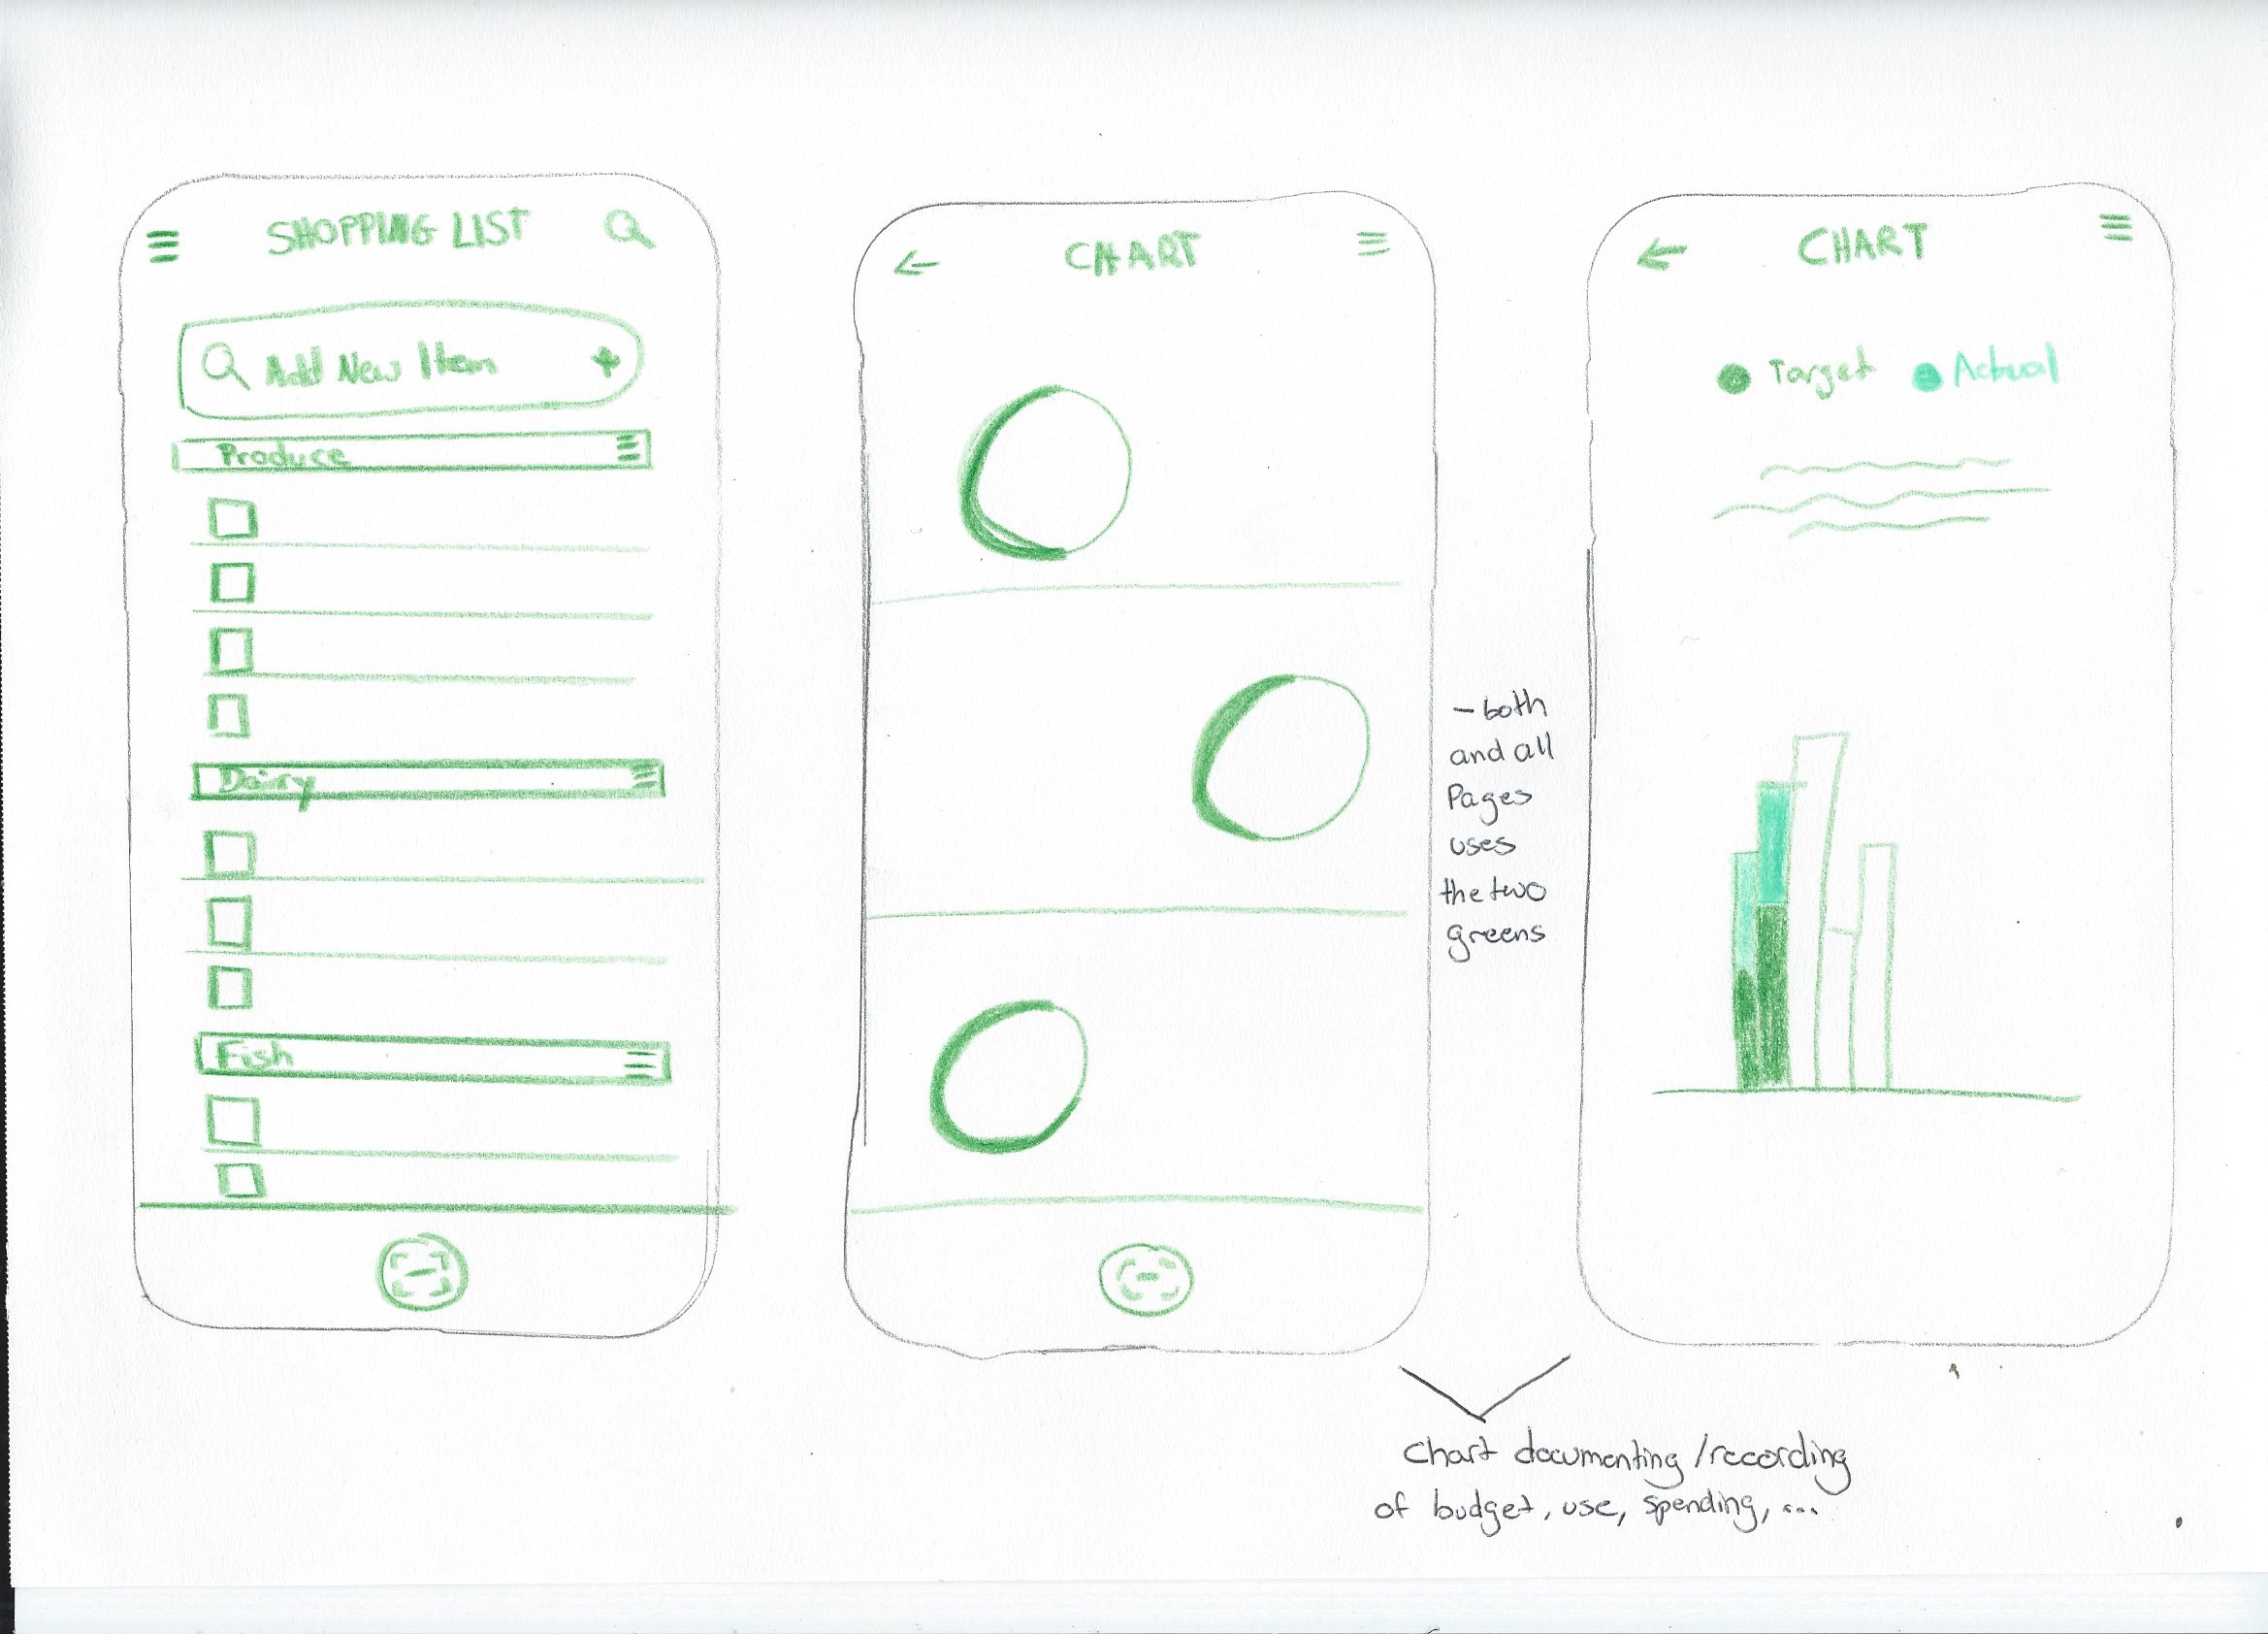 SHOPPING LIST
Add New Item +
Produce
Dairy
Fish
CHART
- both
and all
Pages
uses
the two
greens
CHART
Target Actual
Chart documenting /recording
of budget, use, spending, ...